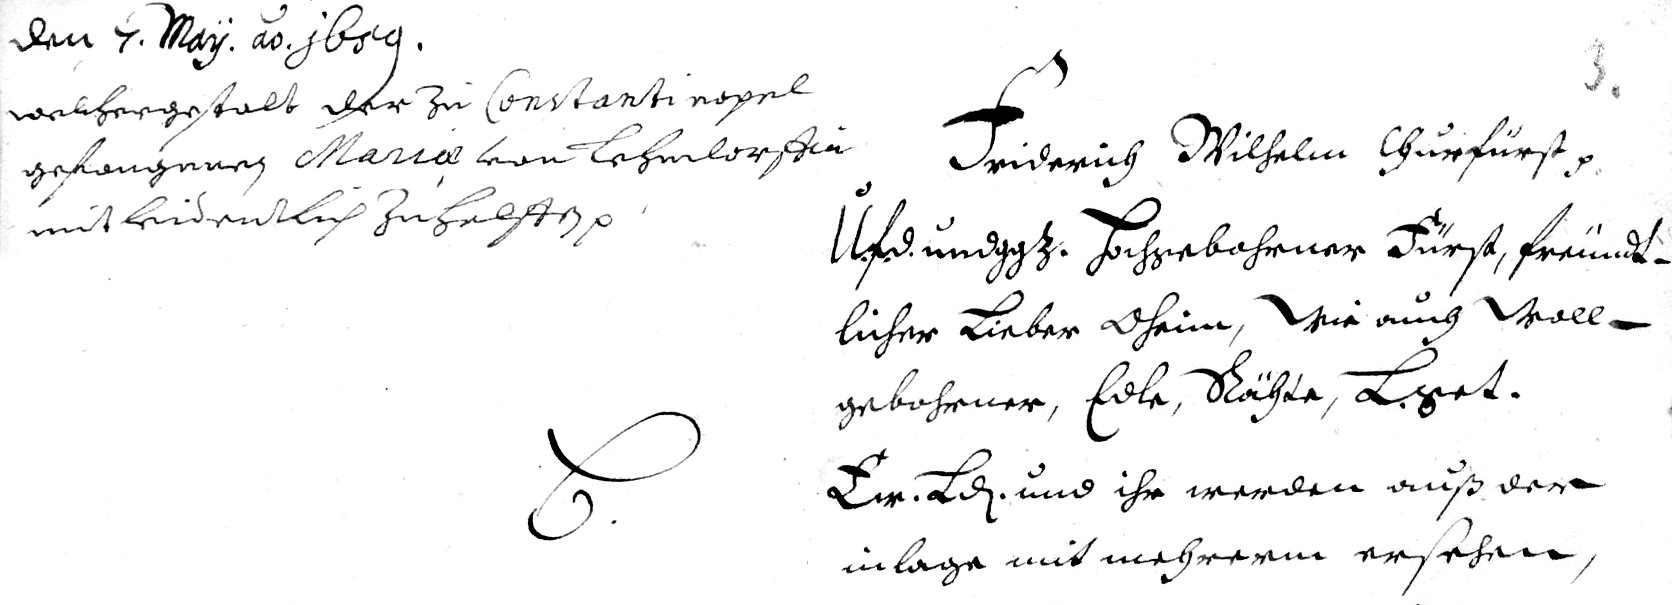 den 7. Maÿ. ao. j659.
welchergestalt der zu Constantinopel
gefangenen Mariæ von Lehndorffin
mitleidentlich zu helffen p
3.
Friderich Wilhelm Churfürst p.
Ufd. undggtz. Hochgebohrner Fürst, freündt-
licher Lieber Oheim, Wie auch Woll-
gebohrner, Edle, Räthe, L. get.
Ew. Ld. und ihr werden auß der
inlage mit mehrerm ersehen,